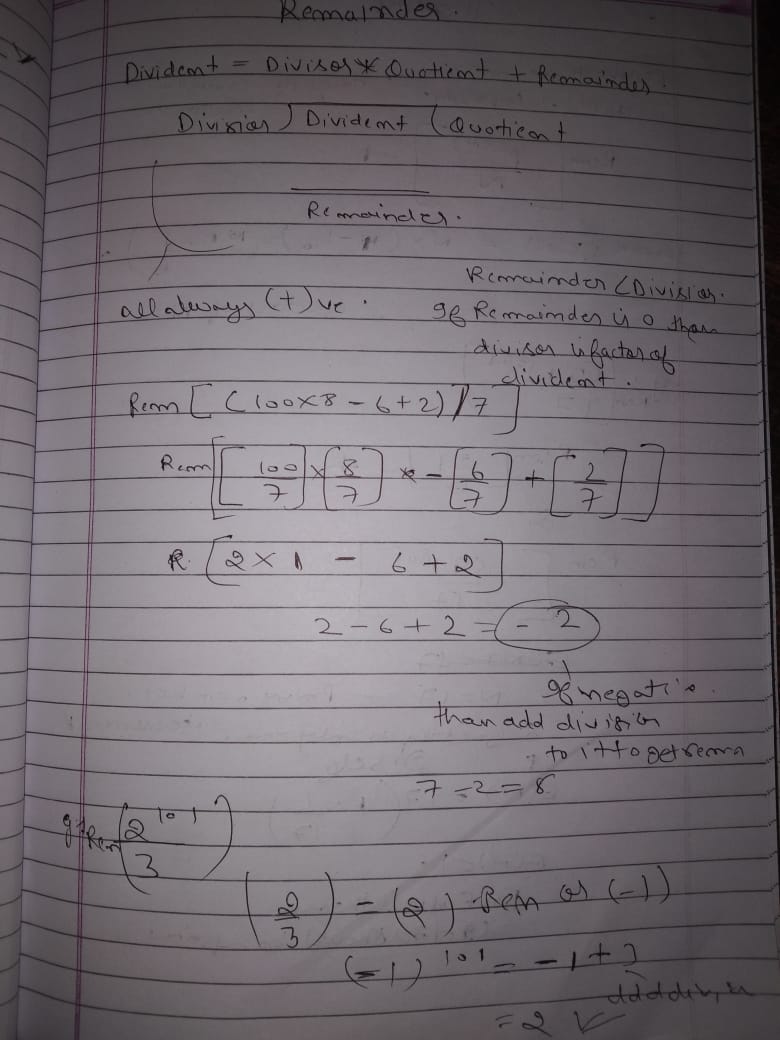 Remainder.
Divident = Divisor * Quotient + Remainder.
Division ) Divident ( Quotient
Remainder.
Remainder < Division.
all always (+) ve .
If Remainder is 0 than
divisor is factor of
divident .
Rem [ (100×8 - 6+2) / 7 ]
Rem [ [100/7] × [8/7] - [6/7] + [2/7] ]
R. [ 2 × 1 - 6 + 2 ]
2 - 6 + 2 = - 2
If negative
than add division
to it to get rem
7 - 2 = 5
Rem (2^101 / 3)
(2/3) = (2) Rem or (-1)
(-1)^101 = -1 + 3
= 2